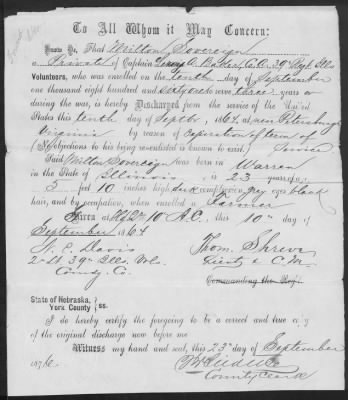 To All Whom it May Concern:
Know Ye, That Milton Sovereign
a Private of Captain A. Baker, Co. 39" Regt. Ills
Volunteers, who was enrolled on the tenth day of September
one thousand eight hundred and sixty one to serve three years or
during the war, is hereby Discharged from the service of the United
States this tenth day of Septbr, 1864, at near Petersburg
Virginia by reason of expiration of term of
(No objections to his being re-enlisted is known to exist.) Service
Said Milton Sovereign was born in Warren
in the State of Illinois, is 23 years of age,
5 feet 10 inches high dark complexion, grey eyes black
hair, and by occupation, when enrolled a Farmer
Given at 10" A.C., this 10" day of
September 1864
Davis
2" Lt. 39" Ills. Vols.
Comdg. Co.
Thom. Shreve
Lieut & C. M.
Commanding the Reg't
State of Nebraska,
York County ss.
I do hereby certify the foregoing to be a correct and true copy
of the original discharge now before me
Witness my hand and seal, this 23" day of September
1876.
County Clerk